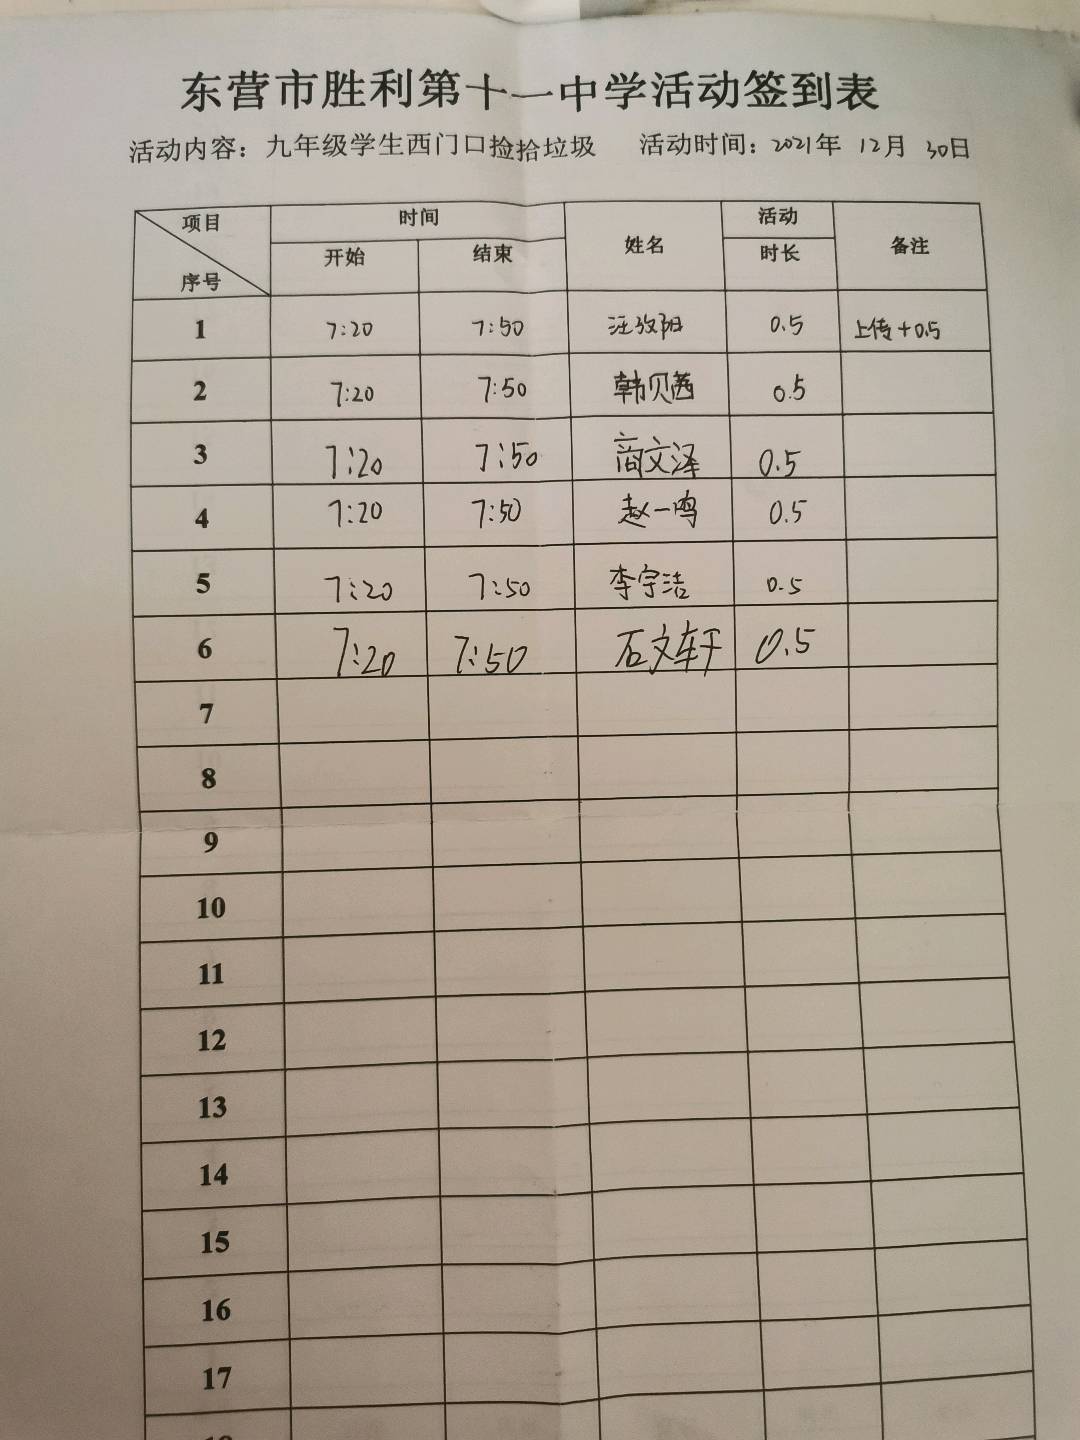 东营市胜利第十一中学活动签到表
活动内容：九年级学生西门口捡拾垃圾 活动时间：2021年 12月 30日
项目 时间 姓名 活动 备注
序号 开始 结束 时长
1 7:20 7:50 汪孜阳 0.5 上传+0.5
2 7:20 7:50 韩贝茜 0.5
3 7:20 7:50 商文泽 0.5
4 7:20 7:50 赵一鸣 0.5
5 7:20 7:50 李宇洁 0.5
6 7:20 7:50 石文轩 0.5
7
8
9
10
11
12
13
14
15
16
17